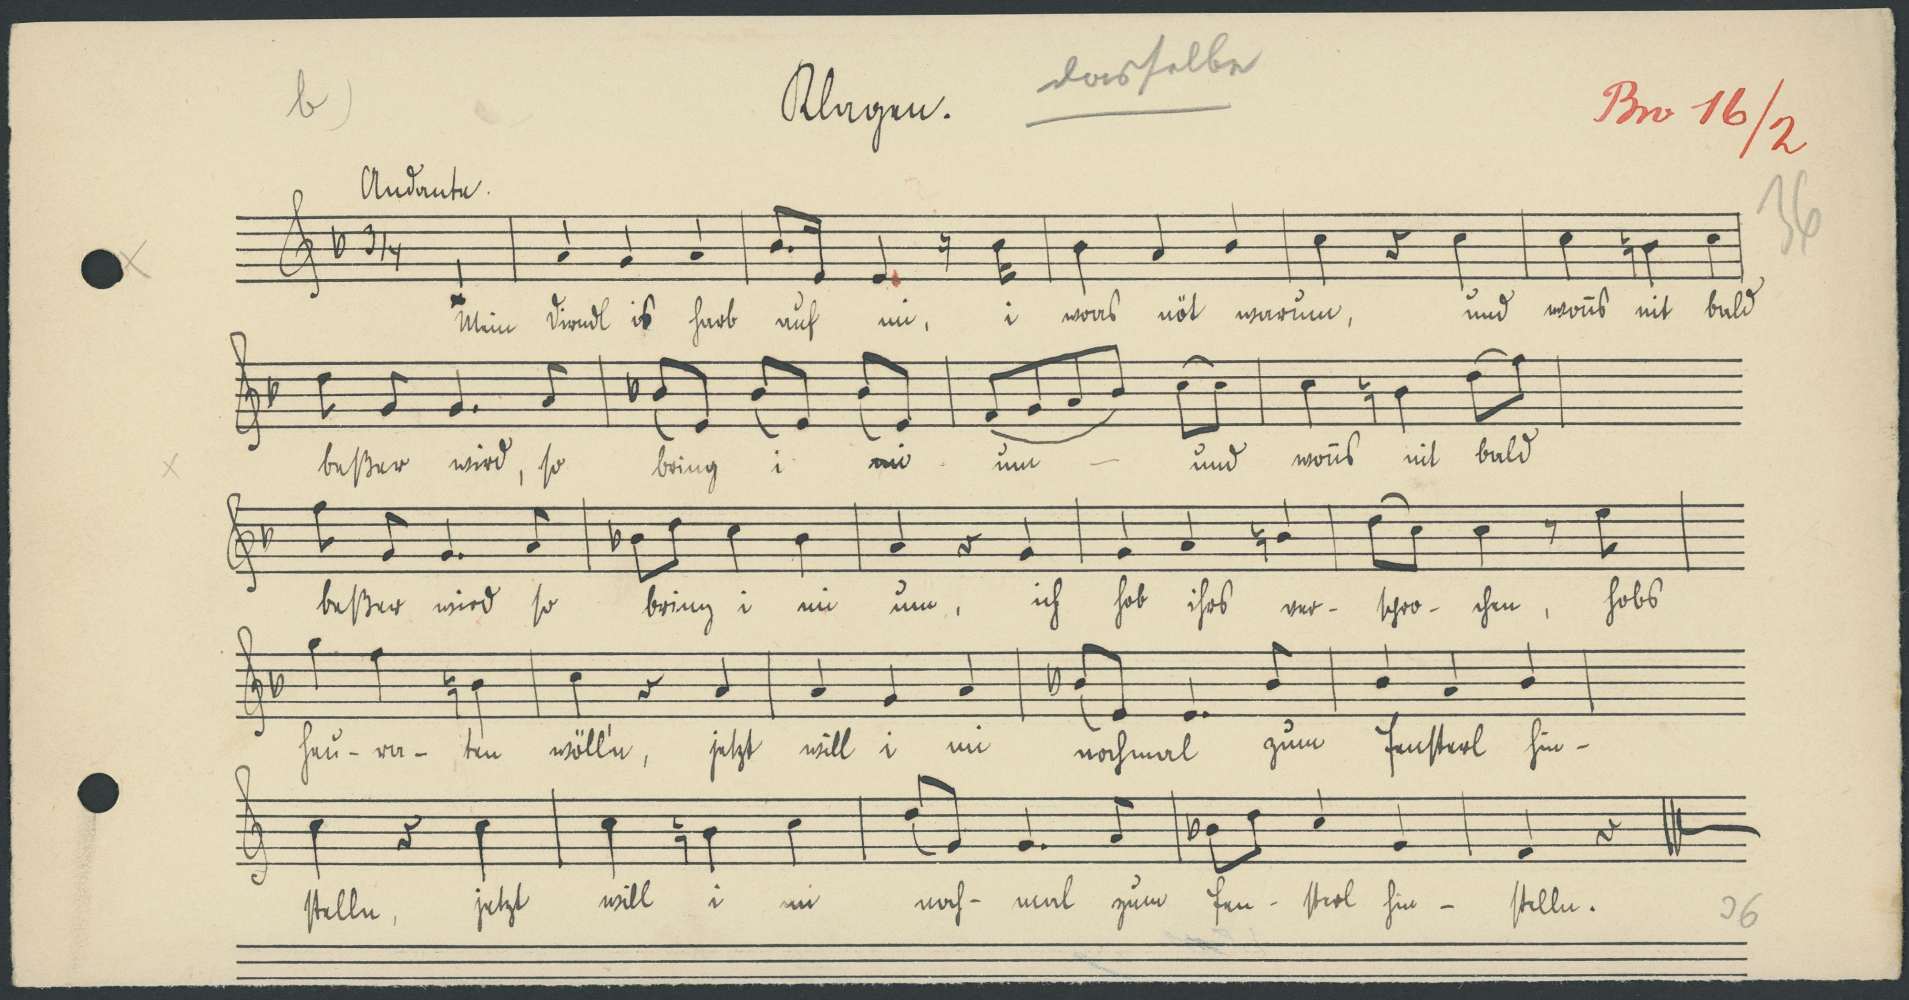 b) Klagen. dasselbe Bro 16/2
36
Andante.
3/4
Mein Dirndl is harb auf mi, i woas nöt warum, und woũs nit bald
beßer wird, so bring i mi um — und woũs nit bald
beßer wird so bring i mi um, ich hob ihrs ver- spro- chen, hobs
heu- ra- ten wölln, jetzt will i mi nochmal zum Fensterl hin-
stelln, jetzt will i mi noch- mal zum Fen- sterl hin- stelln.
36